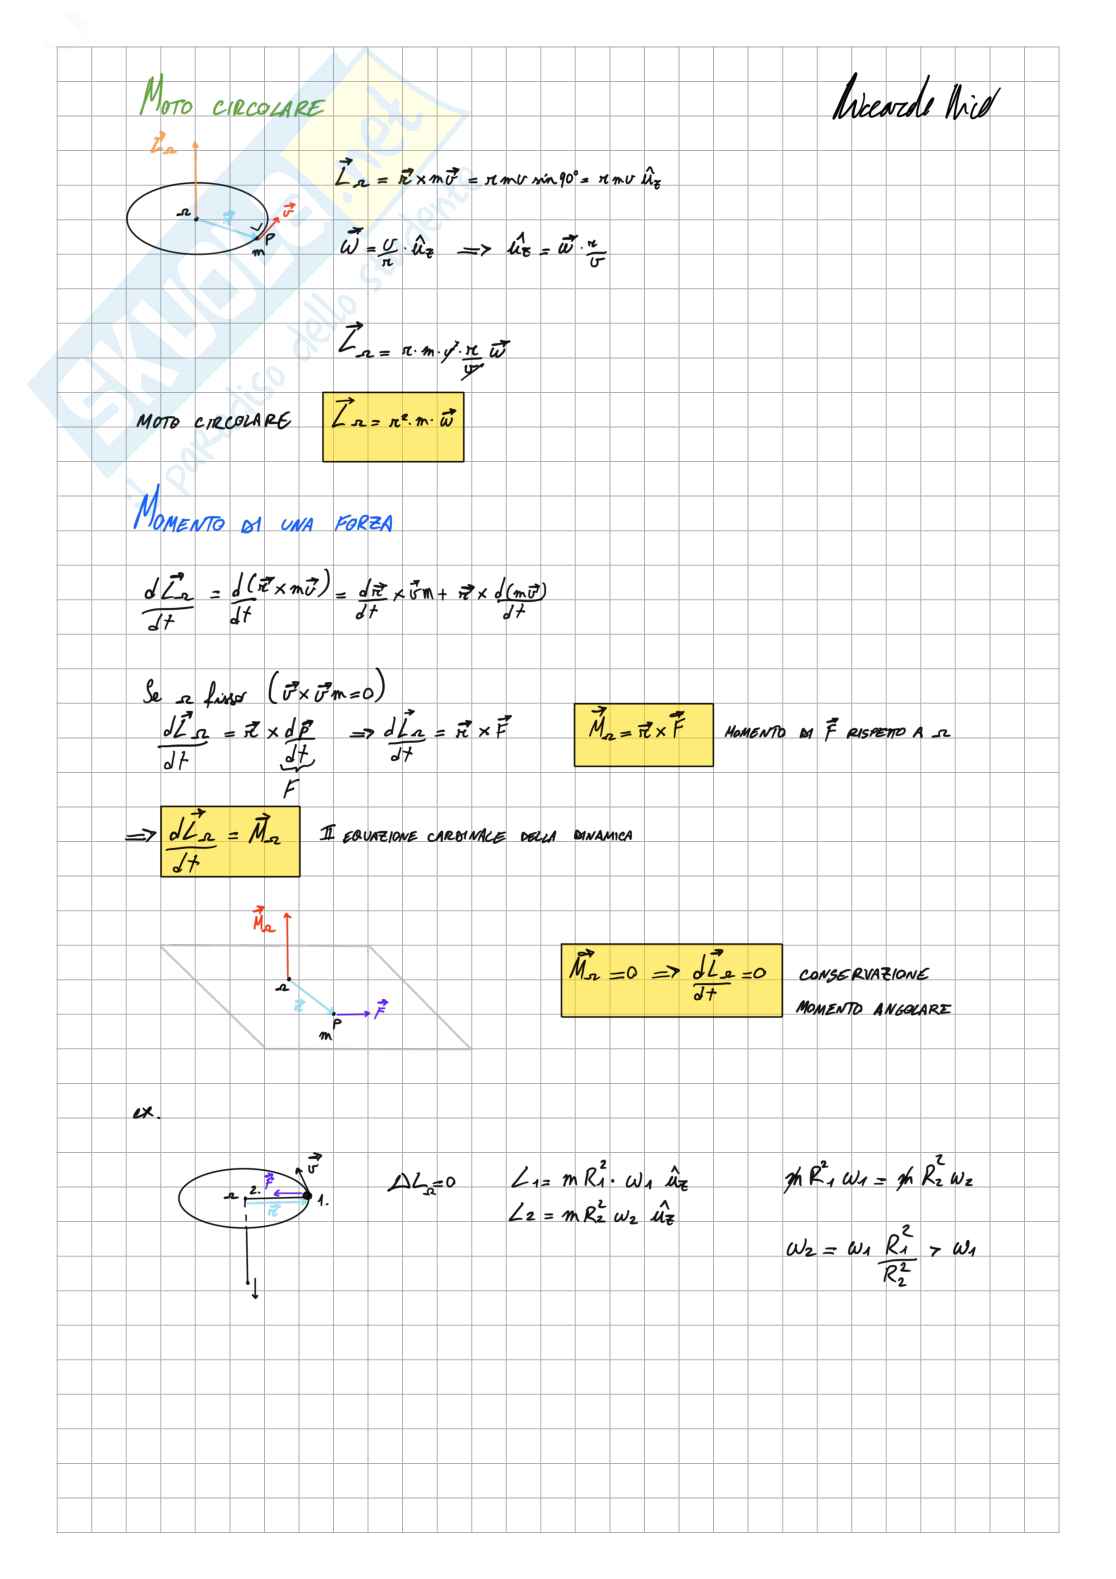 MOTO CIRCOLARE
Riccardo Nico
L⃗_Ω
Ω r⃗ v⃗
P
m
L⃗_Ω = r⃗ × mv⃗ = r m v sin 90° = r m v û_z
w⃗ = v/r · û_z ⇒ û_z = w⃗ · r/v
L⃗_Ω = r · m · v · r/v w⃗
MOTO CIRCOLARE L⃗_Ω = r² · m · w⃗
MOMENTO DI UNA FORZA
dL⃗_Ω/dt = d(r⃗ × mv⃗)/dt = dr⃗/dt × v⃗m + r⃗ × d(mv⃗)/dt
Se Ω fisso (v⃗ × v⃗m = 0)
dL⃗_Ω/dt = r⃗ × dp⃗/dt ⇒ dL⃗_Ω/dt = r⃗ × F⃗
F
M⃗_Ω = r⃗ × F⃗ MOMENTO DI F⃗ RISPETTO A Ω
⇒ dL⃗_Ω/dt = M⃗_Ω II EQUAZIONE CARDINALE DELLA DINAMICA
M⃗_Ω
Ω
r⃗ P F⃗
m
M⃗_Ω = 0 ⇒ dL⃗_Ω/dt = 0 CONSERVAZIONE
MOMENTO ANGOLARE
ex.
v⃗
F⃗
Ω 2. 1.
r⃗
ΔL_Ω = 0
L1 = m R₁² · ω₁ û_z
L2 = m R₂² ω₂ û_z
m R₁² ω₁ = m R₂² ω₂
ω₂ = ω₁ R₁²/R₂² > ω₁
SKUOLA.net
il paradiso dello studente